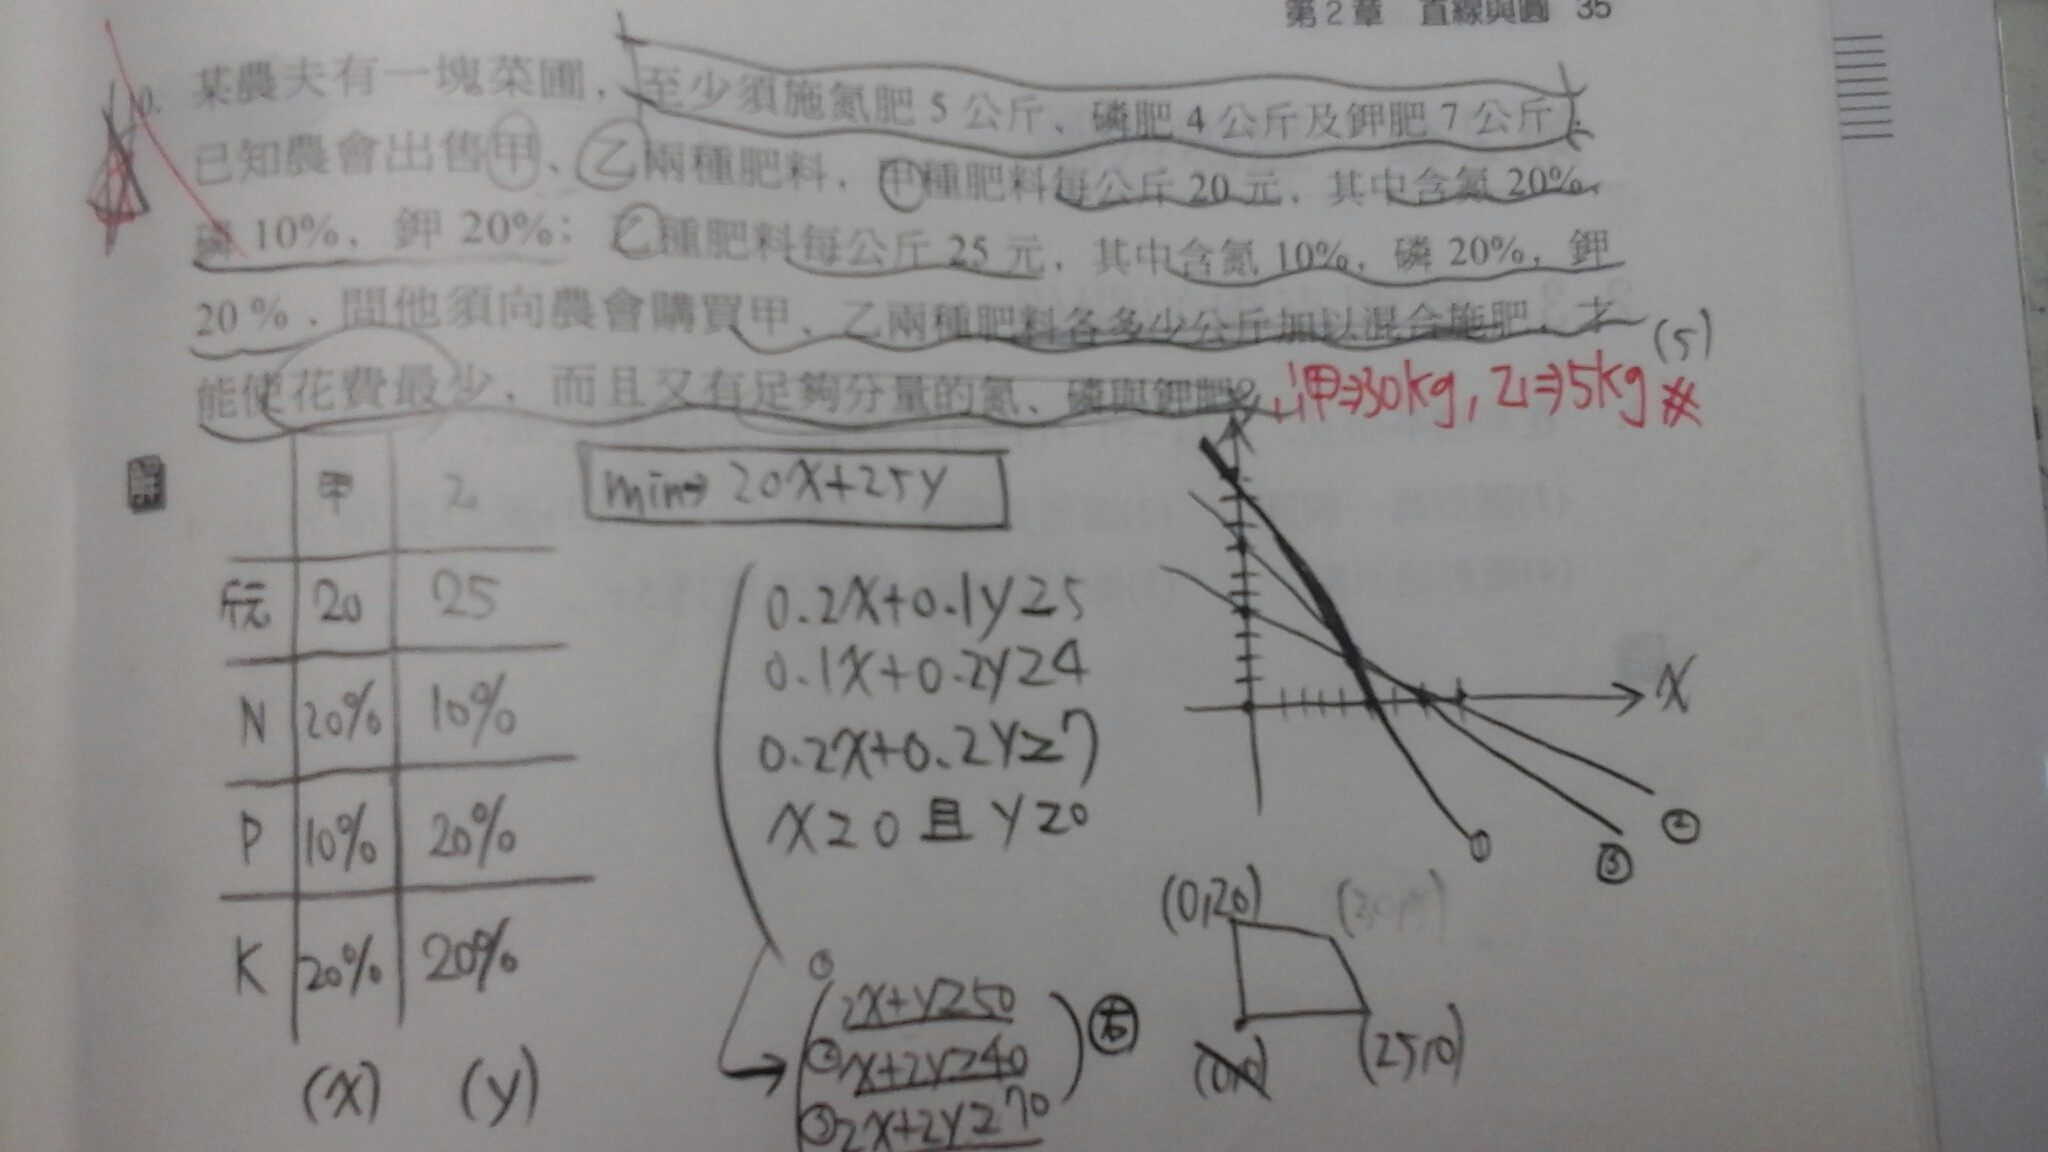 第2章 直線與圓 35
某農夫有一塊菜圃，至少須施氮肥5公斤、磷肥4公斤及鉀肥7公斤，
已知農會出售甲、乙兩種肥料，甲種肥料每公斤20元，其中含氮20%、
磷10%，鉀20%；乙種肥料每公斤25元，其中含氮10%，磷20%，鉀
20%．問他須向農會購買甲、乙兩種肥料各多少公斤加以混合施肥，才
(5)
能使花費最少，而且又有足夠分量的氮、磷與鉀肥？
∴甲⇒30kg, 乙⇒5kg #
詳
甲 乙
min⇒ 20x+25y
元 20 25
N 20% 10%
P 10% 20%
K 20% 20%
(x) (y)
0.2x+0.1y≥5
0.1x+0.2y≥4
0.2x+0.2y≥7
x≥0 且 y≥0
① 2x+y≥50
② x+2y≥40
③ 2x+2y≥70
右
x
①
③
②
(0,20)
(0,0)
(25,0)